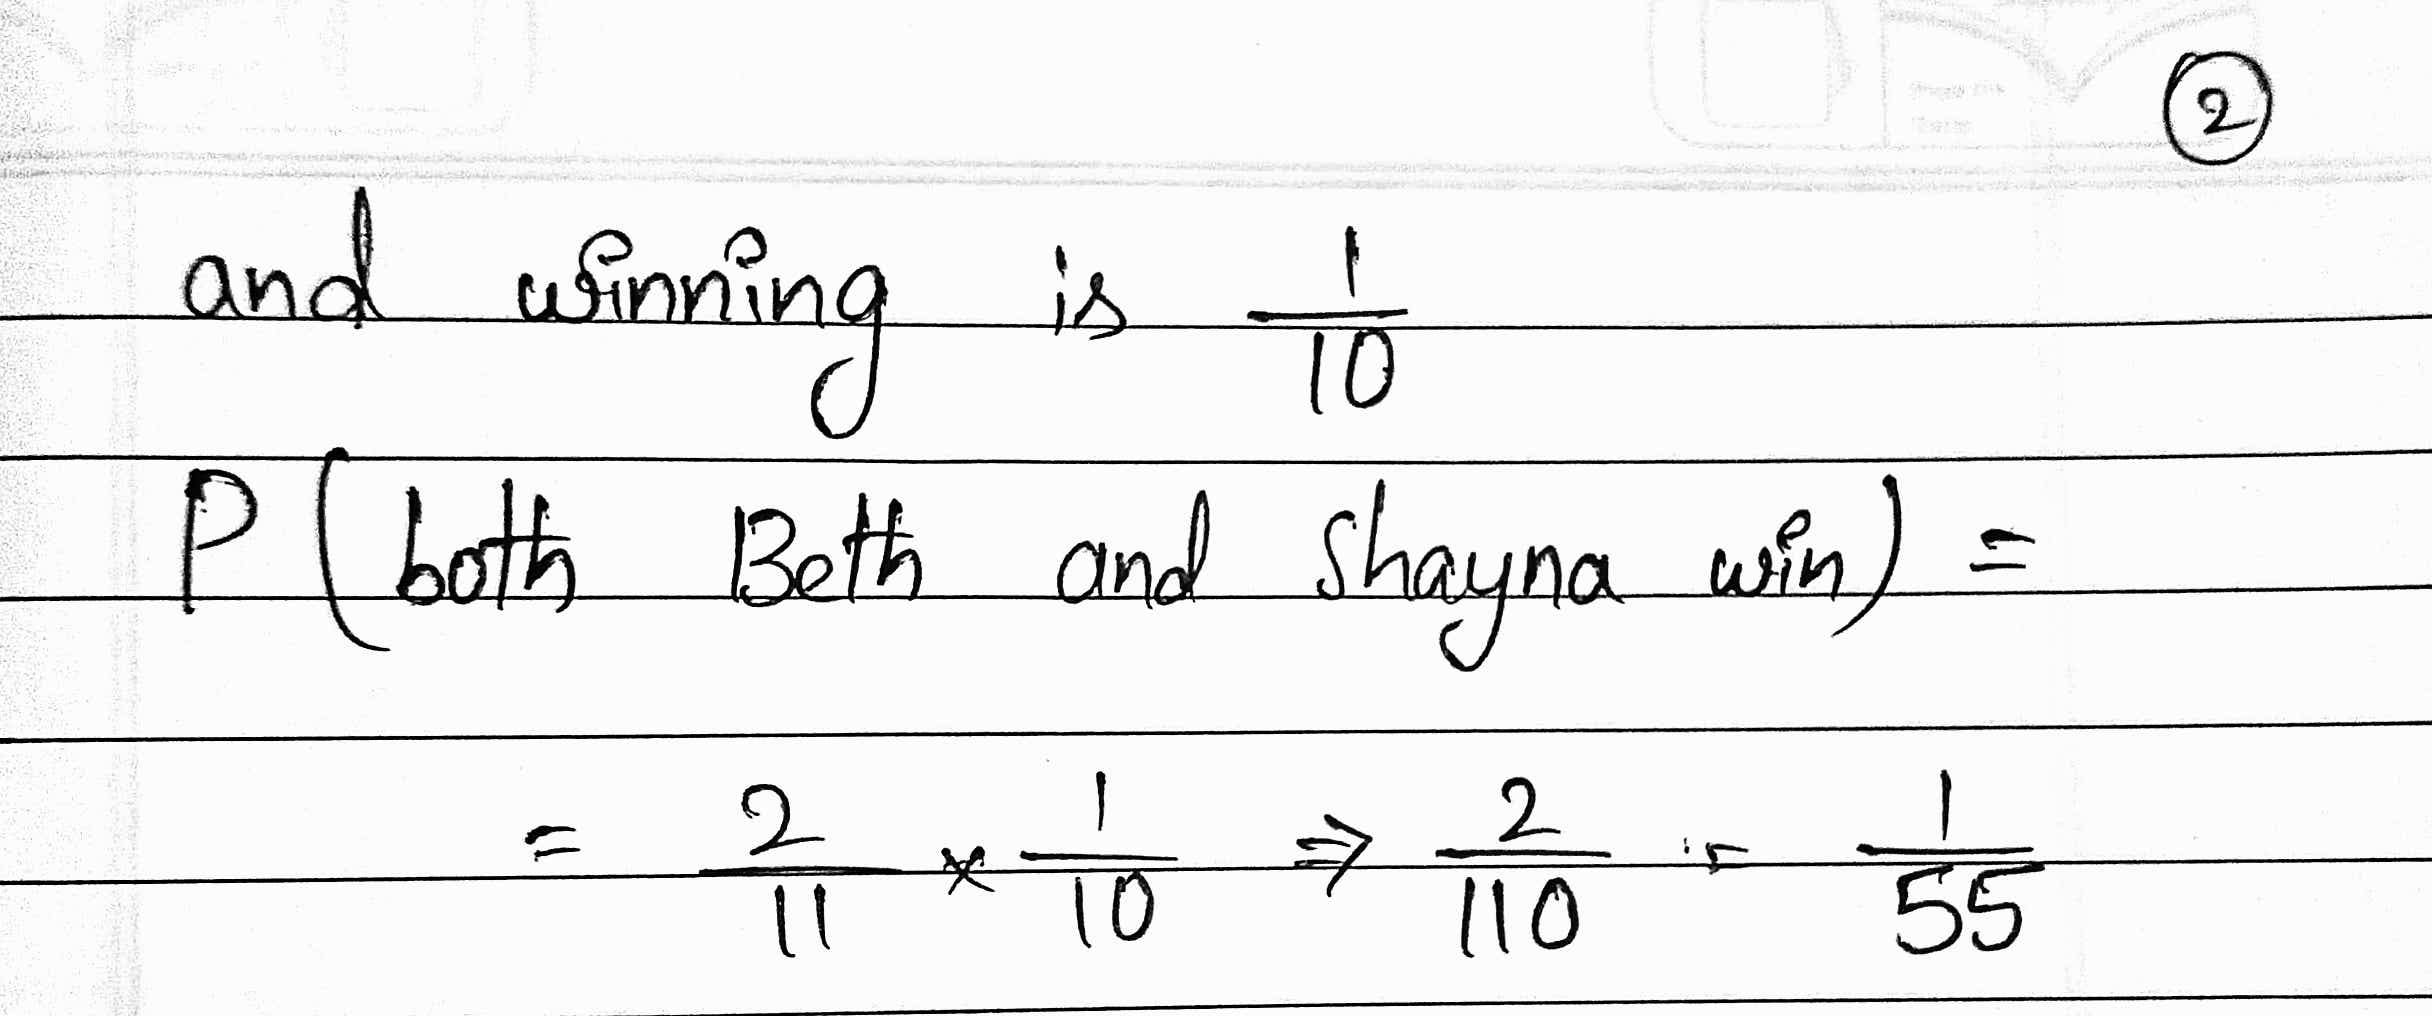 2
and winning is 1/10
P (both Beth and Shayna win) =
= 2/11 × 1/10 ⇒ 2/110 = 1/55